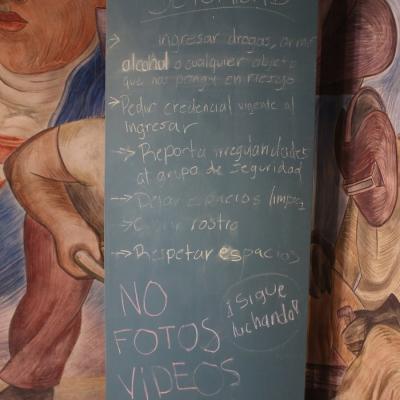 SEGURIDAD
→ ingresar drogas, armas
alcohol o cualquier objeto
que nos ponga en riesgo
→ Pedir credencial vigente al
ingresar
→ Reporta irregularidades
al grupo de seguridad
→ Dejar espacios limpios
→ rostro
→ Respetar espacios
NO
FOTOS
VIDEOS
¡Sigue
luchando!